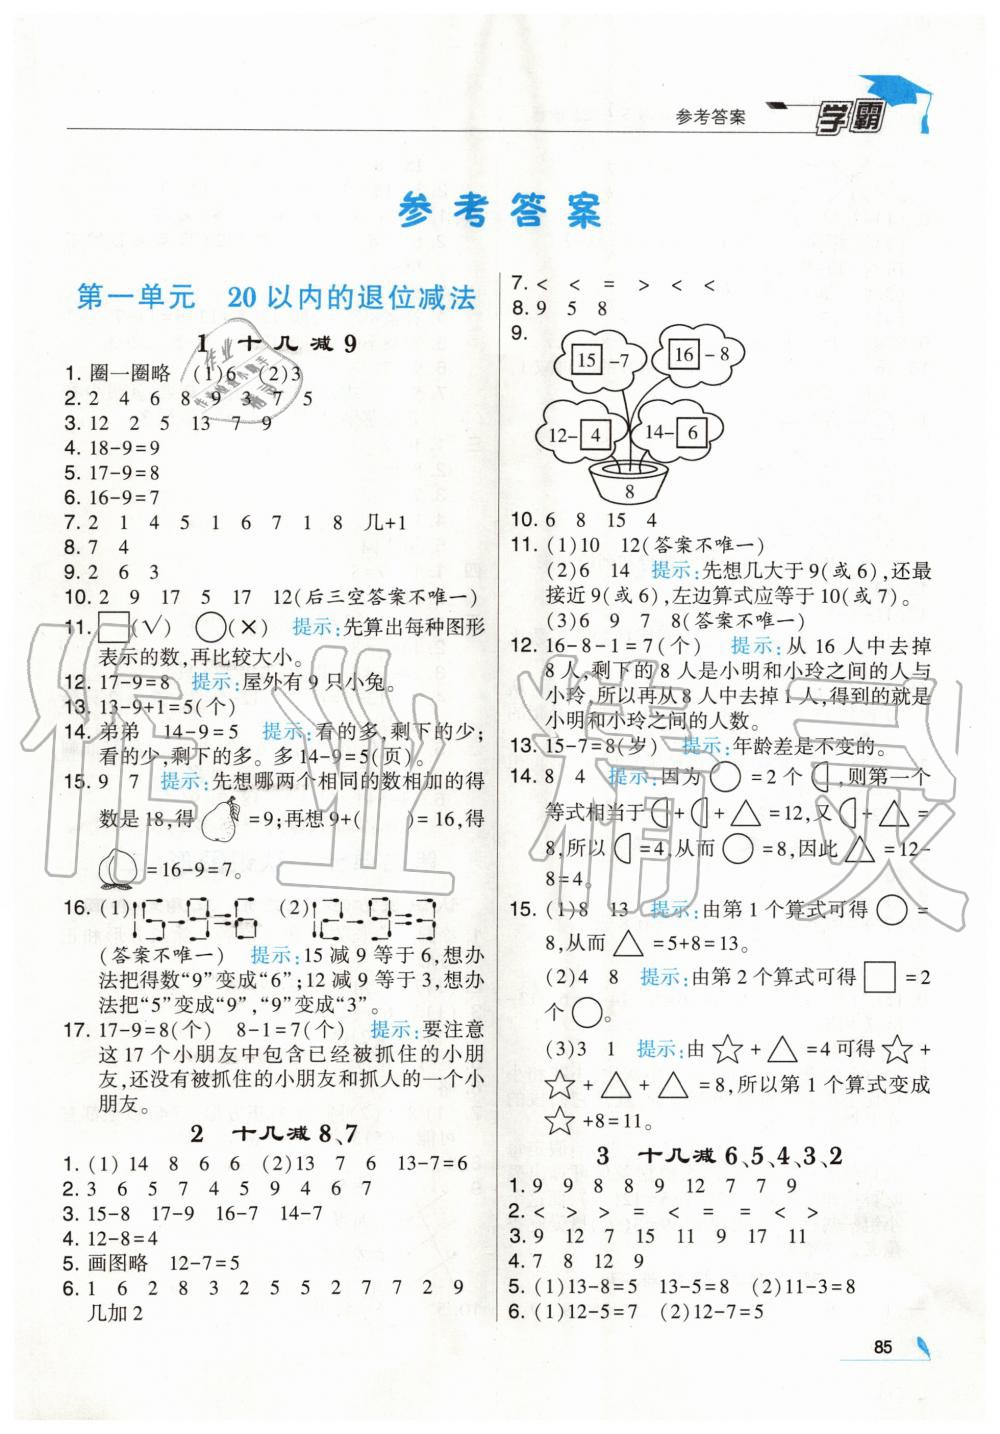 参考答案
学霸
参考答案
第一单元 20以内的退位减法
1 十几减9
1. 圈一圈略 (1)6 (2)3
2. 2 4 6 8 9 3 7 5
3. 12 2 5 13 7 9
4. 18-9=9
5. 17-9=8
6. 16-9=7
7. 2 1 4 5 1 6 7 1 8 几+1
8. 7 4
9. 2 6 3
10. 2 9 17 5 17 12(后三空答案不唯一)
11. □(√) ○(×) 提示:先算出每种图形
表示的数,再比较大小。
12. 17-9=8 提示:屋外有9只小兔。
13. 13-9+1=5(个)
14. 弟弟 14-9=5 提示:看的多,剩下的少;
看的少,剩下的多。多14-9=5(页)。
15. 9 7 提示:先想哪两个相同的数相加的得
数是18,得 =9;再想9+( )=16,得
=16-9=7。
16. (1)15-9=6 (2)12-9=3
(答案不唯一) 提示:15减9等于6,想办
法把得数“9”变成“6”;12减9等于3,想办
法把“5”变成“9”,“9”变成“3”。
17. 17-9=8(个) 8-1=7(个) 提示:要注意
这17个小朋友中包含已经被抓住的小朋
友,还没有被抓住的小朋友和抓人的一个小
朋友。
2 十几减8、7
1. (1) 14 8 6 6 (2)13 7 6 13-7=6
2. 3 6 5 7 4 5 9 4 6 7
3. 15-8 17-9 16-7 14-7
4. 12-8=4
5. 画图略 12-7=5
6. 1 6 2 8 3 2 5 5 2 7 7 2 9
几加2
7. < < = > < <
8. 9 5 8
9.
15-7
16-8
12-4
14-6
8
10. 6 8 15 4
11. (1)10 12(答案不唯一)
(2)6 14 提示:先想几大于9(或6),还最
接近9(或6),左边算式应等于10(或7)。
(3)6 9 7 8(答案不唯一)
12. 16-8-1=7(个) 提示:从16人中去掉
8人,剩下的8人是小明和小玲之间的人与
小玲,所以再从8人中去掉1人,得到的就是
小明和小玲之间的人数。
13. 15-7=8(岁) 提示:年龄差是不变的。
14. 8 4 提示:因为○=2个◖,则第一个
等式相当于◖+◖+△=12,又◖+△=
8,所以◖=4,从而○=8,因此△=12-
8=4。
15. (1)8 13 提示:由第1个算式可得○=
8,从而△=5+8=13。
(2)4 8 提示:由第2个算式可得□=2
个○。
(3)3 1 提示:由☆+△=4可得☆+
☆+△+△=8,所以第1个算式变成
☆+8=11。
3 十几减6、5、4、3、2
1. 9 9 8 8 9 12 7 7 9
2. < > > = < = = < >
3. 9 12 7 15 11 9 17 11
4. 7 8 12 9
5. (1)13-8=5 13-5=8 (2)11-3=8
6. (1)12-5=7 (2)12-7=5
85
作业精灵